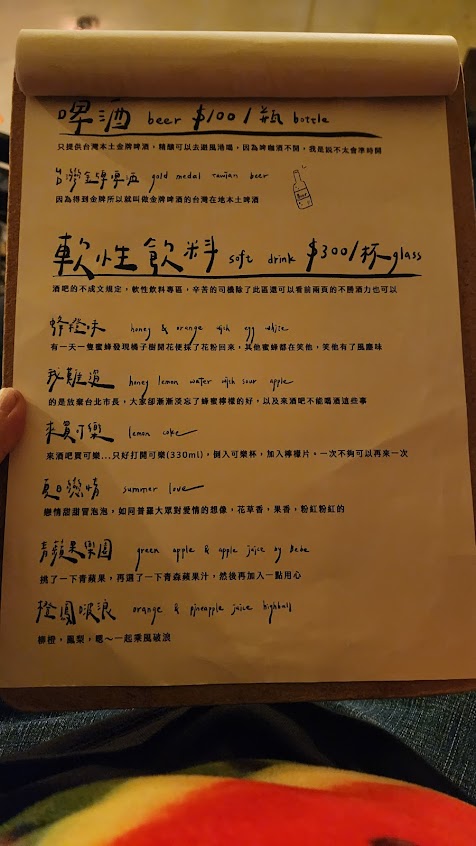 啤酒 beer $100/瓶 bottle
只提供台灣本土金牌啤酒，精釀可以去避風港喝，因為啤咖酒不開，我是說不太會準時開
台灣金牌啤酒 gold medal taiwan beer
因為得到金牌所以就叫做金牌啤酒的台灣在地本土啤酒
軟性飲料 soft drink $300/杯 glass
酒吧的不成文規定，軟性飲料專區，辛苦的司機除了此區還可以看前兩頁的不勝酒力也可以
蜂橙味 honey & orange with egg white
有一天一隻蜜蜂發現橘子樹開花便採了花粉回來，其他蜜蜂都在笑他，笑他有了風塵味
我難過 honey lemon water with sour apple
的是放棄台北市長，大家卻漸漸淡忘了蜂蜜檸檬的好，以及來酒吧不能喝酒這些事
來買可樂 lemon coke
來酒吧買可樂...只好打開可樂(330ml)，倒入可樂杯，加入檸檬片。一次不夠可以再來一次
夏日戀情 summer love
戀情甜甜冒泡泡，如同普羅大眾對愛情的想像，花草香，果香，粉紅粉紅的
青蘋果樂園 green apple & apple juice by Debe
挑了一下青蘋果，再選了一下青森蘋果汁，然後再加入一點用心
橙鳳破浪 orange & pineapple juice highball
柳橙，鳳梨，嗯～一起乘風破浪